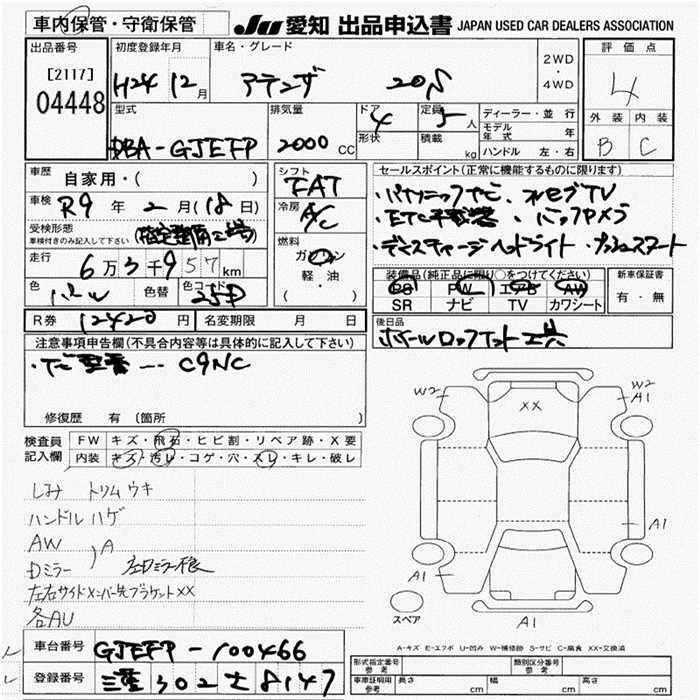 車内保管・守衛保管 JU 愛知 出品申込書 JAPAN USED CAR DEALERS ASSOCIATION
出品番号 初度登録年月 車名・グレード 評価点
[2117]
04448
H24 12月 アテンザ 20S 2WD・4WD 4
型式 排気量 ドア形状 定員 積載 ディーラー・並行 外装 内装
DBA-GJEFP 2000CC 4 5人 kg モデル年式 年 B C
ハンドル 左・右
車歴 自家用・( ) シフト FAT セールスポイント(正常に機能するものに限ります)
車検 R9年2月(18日) 冷房 A/C
受検形態 車検付きのみ記入して下さい
・ETC
燃料 ガソリン 軽・油 ( )
走行 6万3千957km
装備品(純正品に限り○をつけてください) 新車保証書
PS PW エアB AW
SR ナビ TV カワシート 有・無
色 パール 色替 色コード 25D
R券 12420円 名変期限 月 日
後日品 ホイールロックナット工具
注意事項申告欄(不具合内容等は具体的に記入して下さい)
C9NC
修復歴 有(箇所 )
検査員記入欄 FW キズ・飛石・ヒビ割・リペア跡・X要
内装 キズ・汚レ・コゲ・穴・スレ・キレ・破レ
しみ トリムウキ
ハンドルハゲ
AW
Dミラー )A 左Dミラー痕
左右サイドメンバー先ブラケットXX
各AU
W2 XX W2 A1
A1
A1 A1
スペア
A-キズ E-エクボ U-凹み W-補修跡 S-サビ C-腐食 XX-交換済
車台番号 GJEFP-100466
登録番号 三重 302 8147
型式指定番号 参考 類別区分番号 参考
車庫証明用 参考 長さ cm 幅 cm 高さ cm